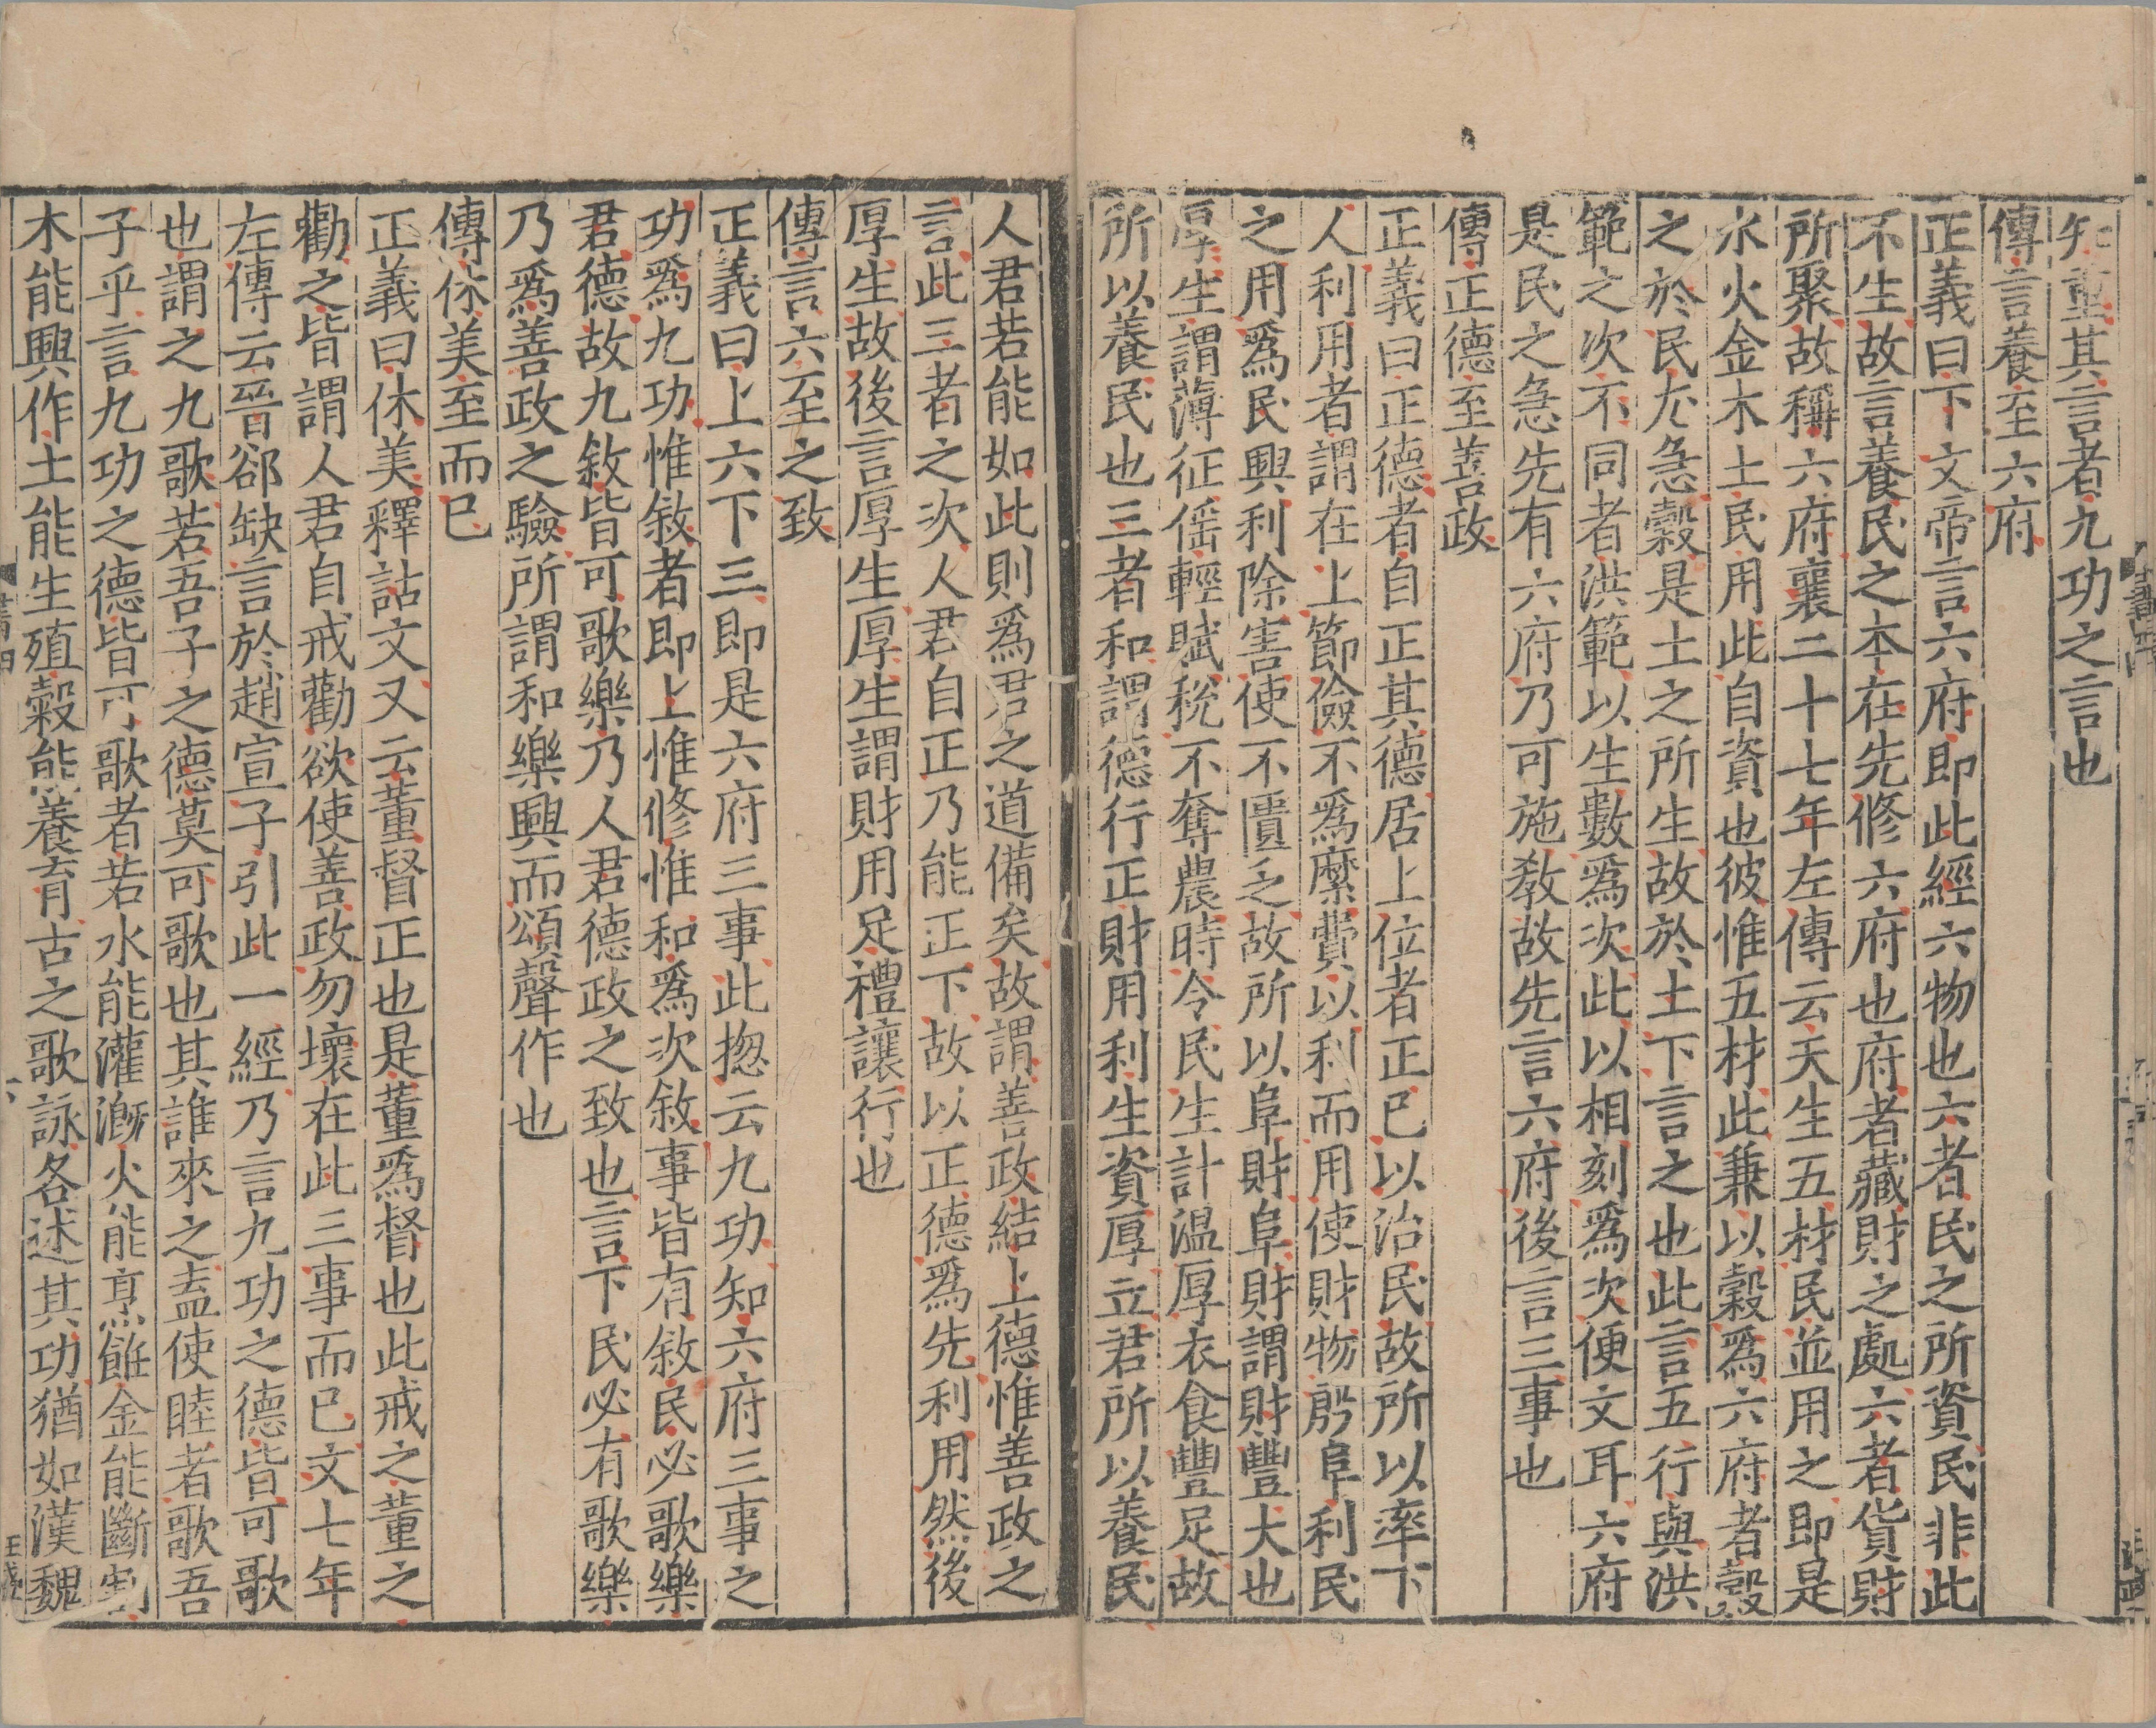 知重其言者九功之言也
傳言養至六府
正義曰下文帝言六府即此經六物也六者民之所資民非此
不生故言養民之本在先修六府也府者藏財之處六者貨財
所聚故稱六府襄二十七年左傳云天生五材民並用之即是
水火金木土民用此自資也彼惟五材此兼以穀爲六府者穀
之於民尤急穀是土之所生故於土下言之也此言五行與洪
範之次不同者洪範以生數爲次此以相刻爲次便文耳六府
是民之急先有六府乃可施教故先言六府後言三事也
傳正德至善政
正義曰正德者自正其德居上位者正已以治民故所以率下
人利用者謂在上節儉不爲縻費以利而用使財物殷阜利民
之用爲民興利除害使不匱乏故所以阜財阜財謂財豐大也
厚生謂薄征徭輕賦稅不奪農時令民生計温厚衣食豐足故
所以養民也三者和謂德行正財用利生資厚立君所以養民
人君若能如此則爲君之道備矣故謂善政結上德惟善政之
言此三者之次人君自正乃能正下故以正德爲先利用然後
厚生故後言厚生厚生謂財用足禮讓行也
傳言六至之致
正義曰上六下三即是六府三事此揔云九功知六府三事之
功爲九功惟敘者即上惟修惟和爲次敘事皆有敘民必歌樂
君德故九敘皆可歌樂乃人君德政之致也言下民必有歌樂
乃爲善政之驗所謂和樂興而頌聲作也
傳休美至而已
正義曰休美釋詁文又云董督正也是董爲督也此戒之董之
勸之皆謂人君自戒勸欲使善政勿壞在此三事而已文七年
左傳云晉郤缺言於趙宣子引此一經乃言九功之德皆可歌
也謂之九歌若吾子之德莫可歌也其誰來之盍使睦者歌吾
子乎言九功之德皆可歌者若水能灌溉火能烹飪金能斷割
木能興作土能生殖穀能養育古之歌詠各述其功猶如漢魏